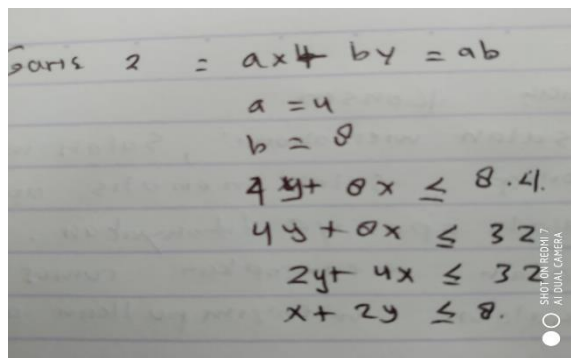 Garis 2 = ax + by = ab
a = 4
b = 8
4y + 8x ≤ 8.4.
4y + 8x ≤ 32
2y + 4x ≤ 32
x + 2y ≤ 8.
SHOT ON REDMI 7
AI DUAL CAMERA